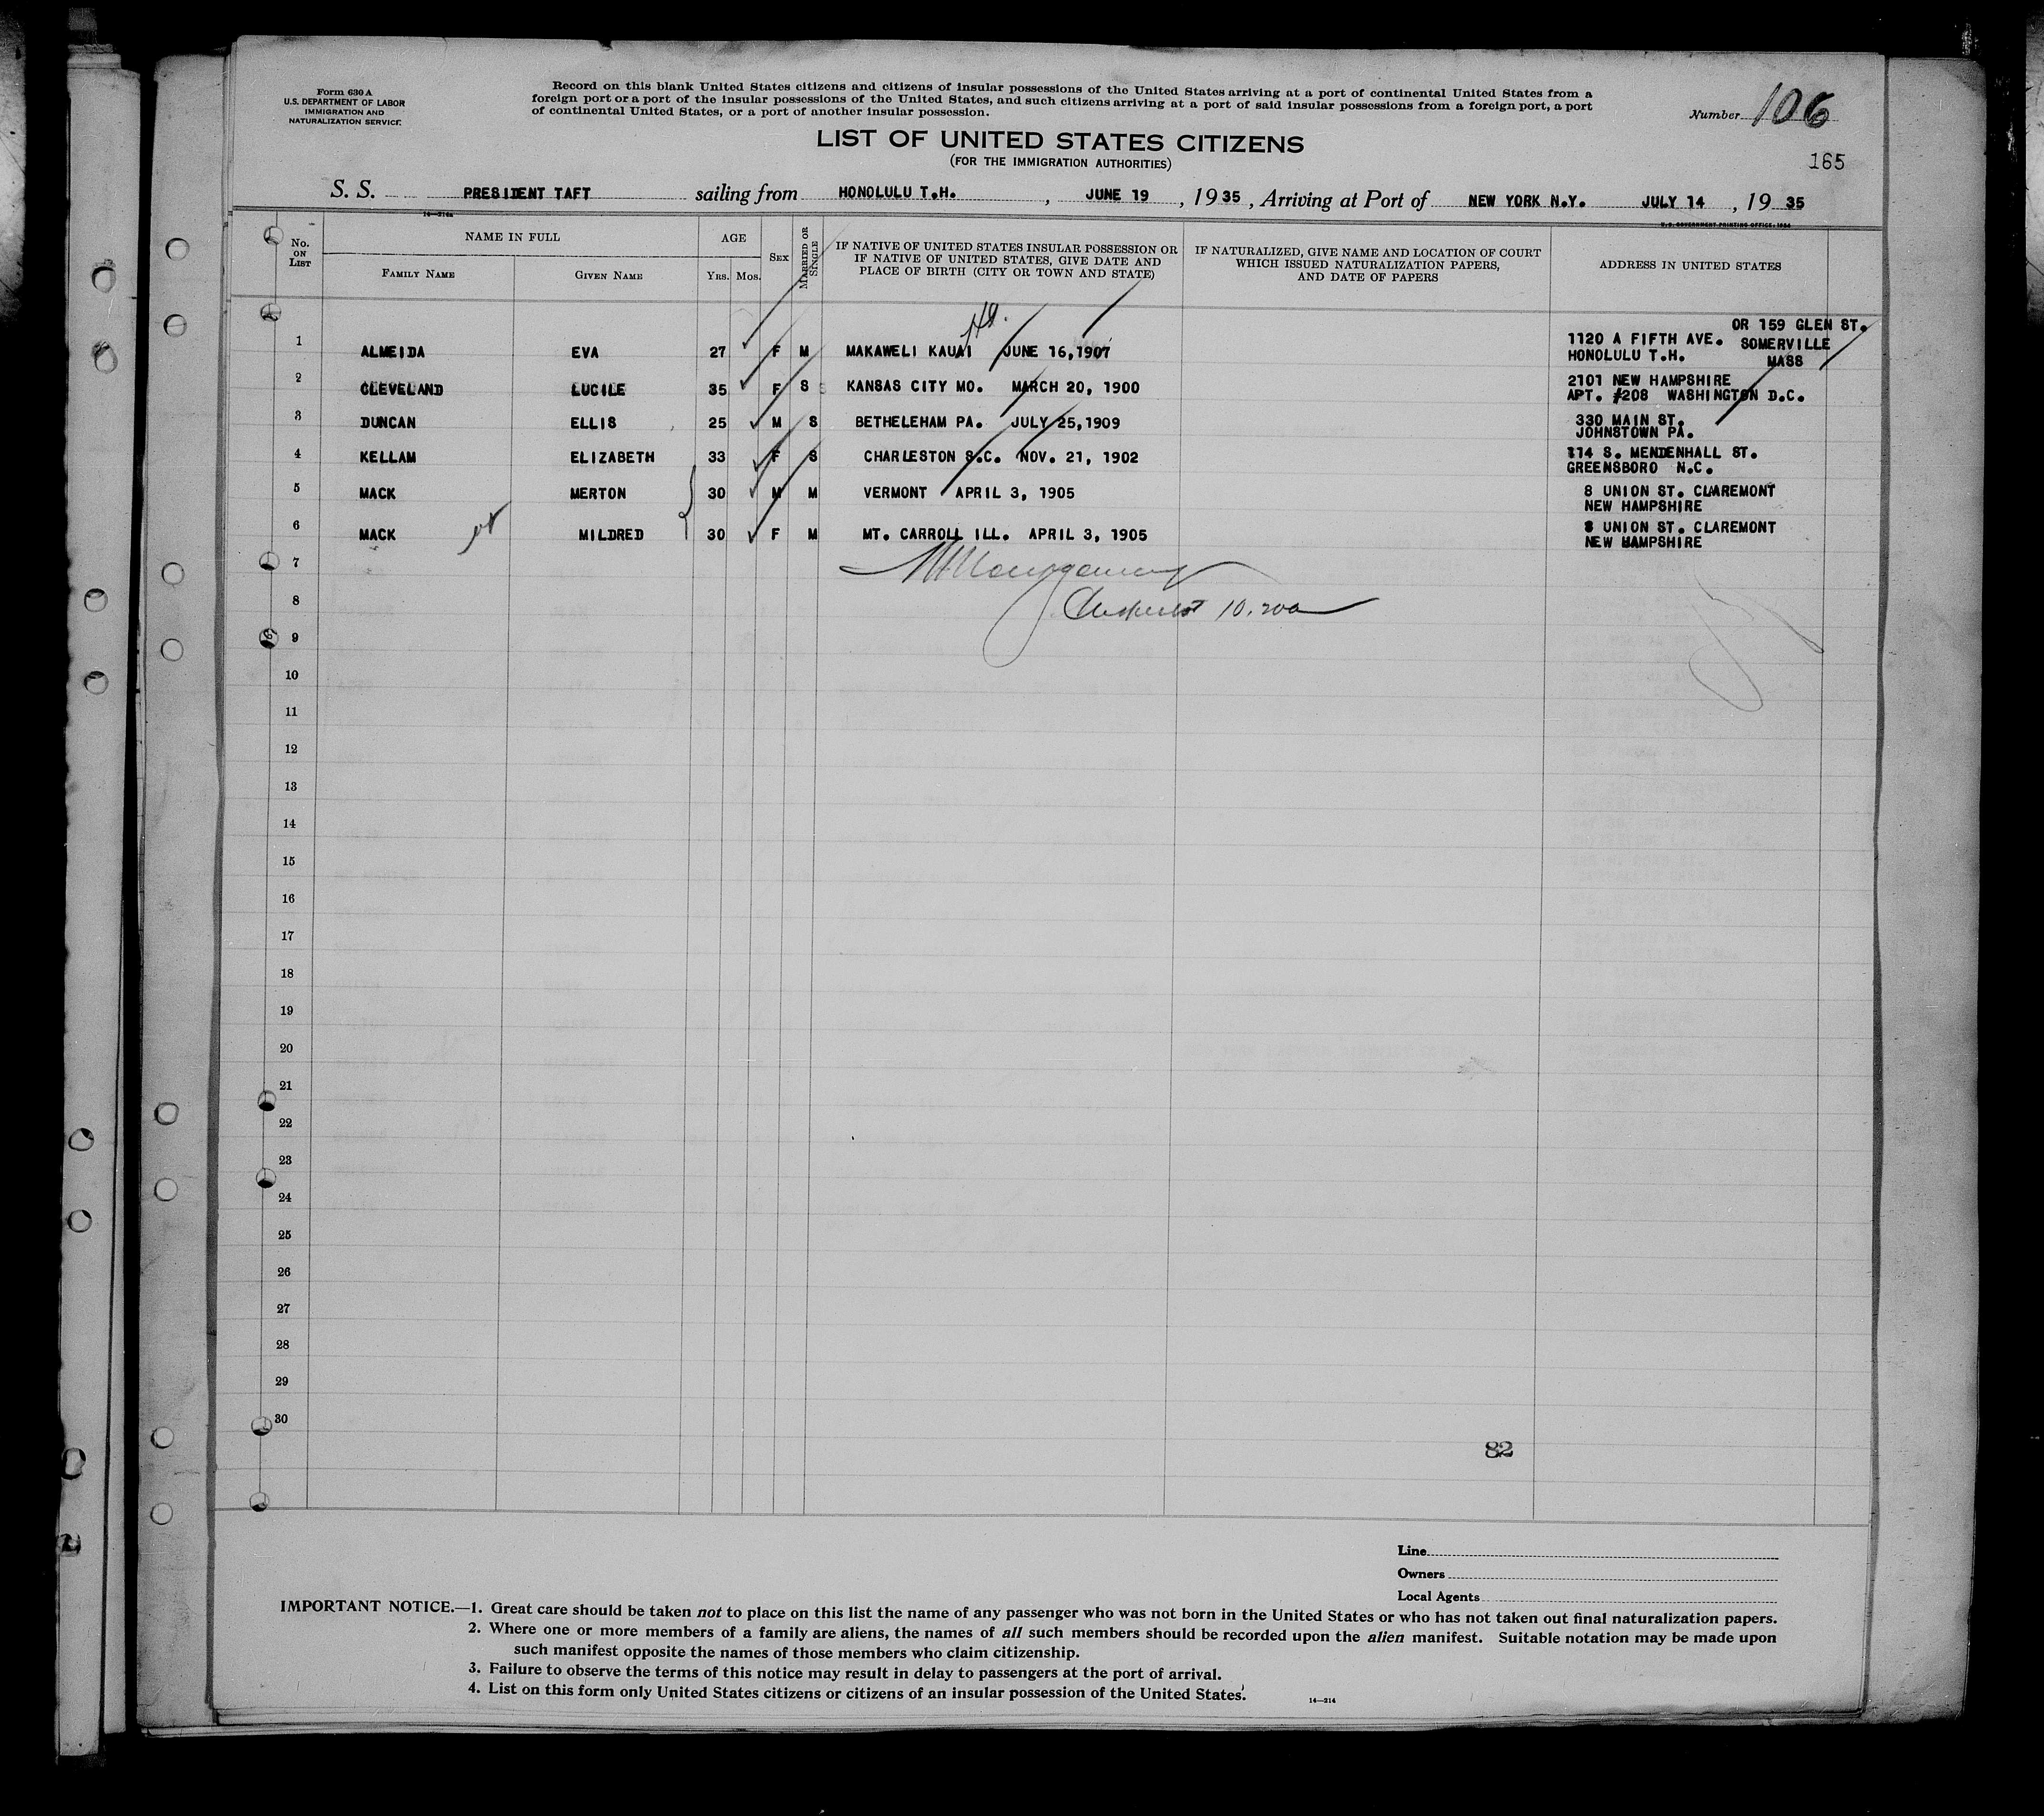 Form 630 A
U.S. DEPARTMENT OF LABOR
IMMIGRATION AND
NATURALIZATION SERVICE
Record on this blank United States citizens and citizens of insular possessions of the United States arriving at a port of continental United States from a
foreign port or a port of the insular possessions of the United States, and such citizens arriving at a port of said insular possessions from a foreign port, a port
of continental United States, or a port of another insular possession.
Number 106
LIST OF UNITED STATES CITIZENS
(FOR THE IMMIGRATION AUTHORITIES)
165
S. S. PRESIDENT TAFT sailing from HONOLULU T.H. , JUNE 19 , 1935 , Arriving at Port of NEW YORK N.Y. JULY 14 , 19 35
14—214a
U. S. GOVERNMENT PRINTING OFFICE: 1934
No. ON LIST
NAME IN FULL
FAMILY NAME
GIVEN NAME
AGE
YRS. MOS.
SEX
MARRIED OR SINGLE
IF NATIVE OF UNITED STATES INSULAR POSSESSION OR
IF NATIVE OF UNITED STATES, GIVE DATE AND
PLACE OF BIRTH (CITY OR TOWN AND STATE)
IF NATURALIZED, GIVE NAME AND LOCATION OF COURT
WHICH ISSUED NATURALIZATION PAPERS,
AND DATE OF PAPERS
ADDRESS IN UNITED STATES
1 ALMEIDA EVA 27 F M MAKAWELI KAUAI JUNE 16,1907 1120 A FIFTH AVE. HONOLULU T.H. OR 159 GLEN ST. SOMERVILLE MASS
2 CLEVELAND LUCILE 35 F S KANSAS CITY MO. MARCH 20, 1900 2101 NEW HAMPSHIRE APT. #208 WASHINGTON D.C.
3 DUNCAN ELLIS 25 M S BETHELEHAM PA. JULY 25,1909 330 MAIN ST. JOHNSTOWN PA.
4 KELLAM ELIZABETH 33 F S CHARLESTON S.C. NOV. 21, 1902 114 S. MENDENHALL ST. GREENSBORO N.C.
5 MACK MERTON 30 M M VERMONT APRIL 3, 1905 8 UNION ST. CLAREMONT NEW HAMPSHIRE
6 MACK MILDRED 30 F M MT. CARROLL ILL. APRIL 3, 1905 8 UNION ST. CLAREMONT NEW HAMPSHIRE
7
8
9
10
11
12
13
14
15
16
17
18
19
20
21
22
23
24
25
26
27
28
29
30
82
Line
Owners
Local Agents
IMPORTANT NOTICE.—1. Great care should be taken not to place on this list the name of any passenger who was not born in the United States or who has not taken out final naturalization papers.
2. Where one or more members of a family are aliens, the names of all such members should be recorded upon the alien manifest. Suitable notation may be made upon
such manifest opposite the names of those members who claim citizenship.
3. Failure to observe the terms of this notice may result in delay to passengers at the port of arrival.
4. List on this form only United States citizens or citizens of an insular possession of the United States.
14—214